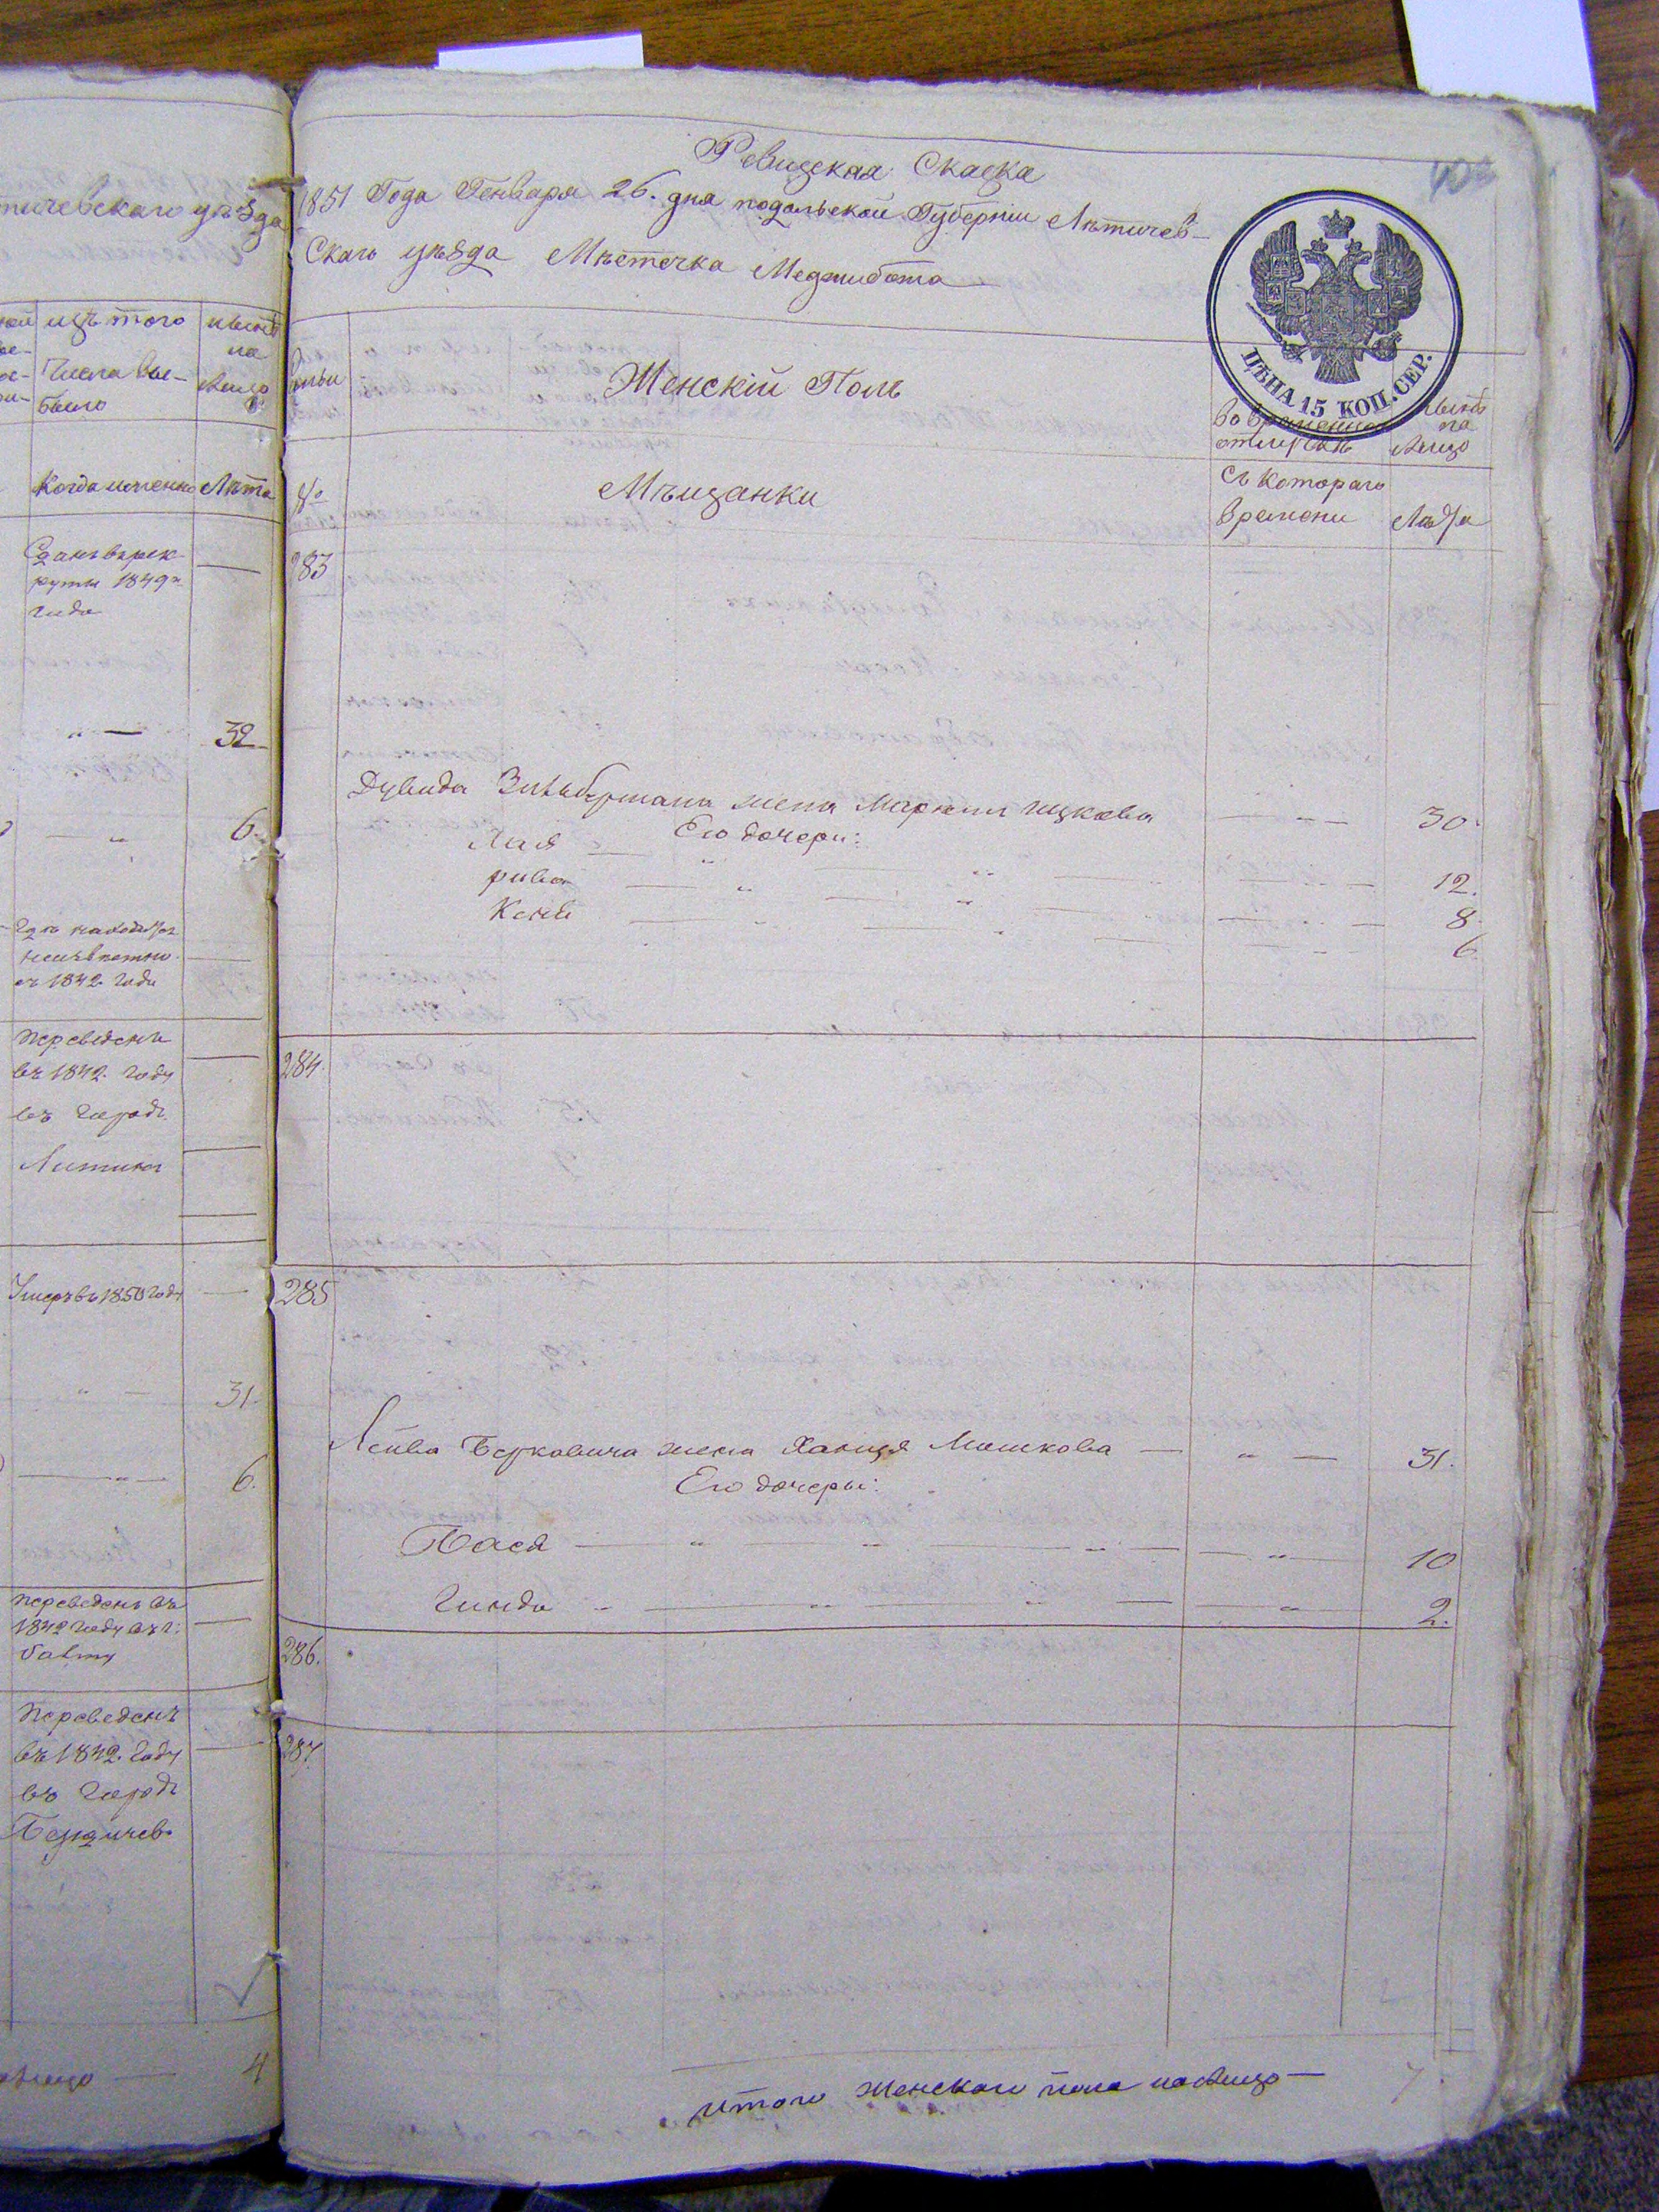 тичевскаго уѣзда
изъ того
нынѣ
на
Числа вы-
лицо
было
Когда именно
Лѣта
Сданъ въ рек-
руты 1849го
года
" —
32
— "
6.
Гдѣ находится
неизвѣстно
съ 1842 года
переведенъ
въ 1842 году
въ городъ
Литинъ
Умеръ въ 1850 году
" —
31.
— " —
6.
переведенъ въ
1842 году въ г:
Балту
Переведенъ
въ 1842 году
въ городъ
Бердичев
4
Ревизская Сказка
1851 Года Генваря 26. дня подольской Губерніи Лѣтичев-
Скаго уѣзда Мѣстечка Меджибожа
ЦѢНА 15 КОП. СЕР.
Женскій Полъ
Во временной
отлучкѣ
нынѣ
на
лицо
№
Мѣщанки
Съ Котораго
Времени
Лѣта
283
Дувида Зильбермана жена Ицкова 30.
Его дочери:
Хая 12.
рива 8.
Кеня 6
284.
285
Лейба Берковича жена Ханця Мошкова — " — 31.
Его дочеры:
Бася 10
Гинда 2.
286.
287.
Итого Женского пола на лицо — 7.